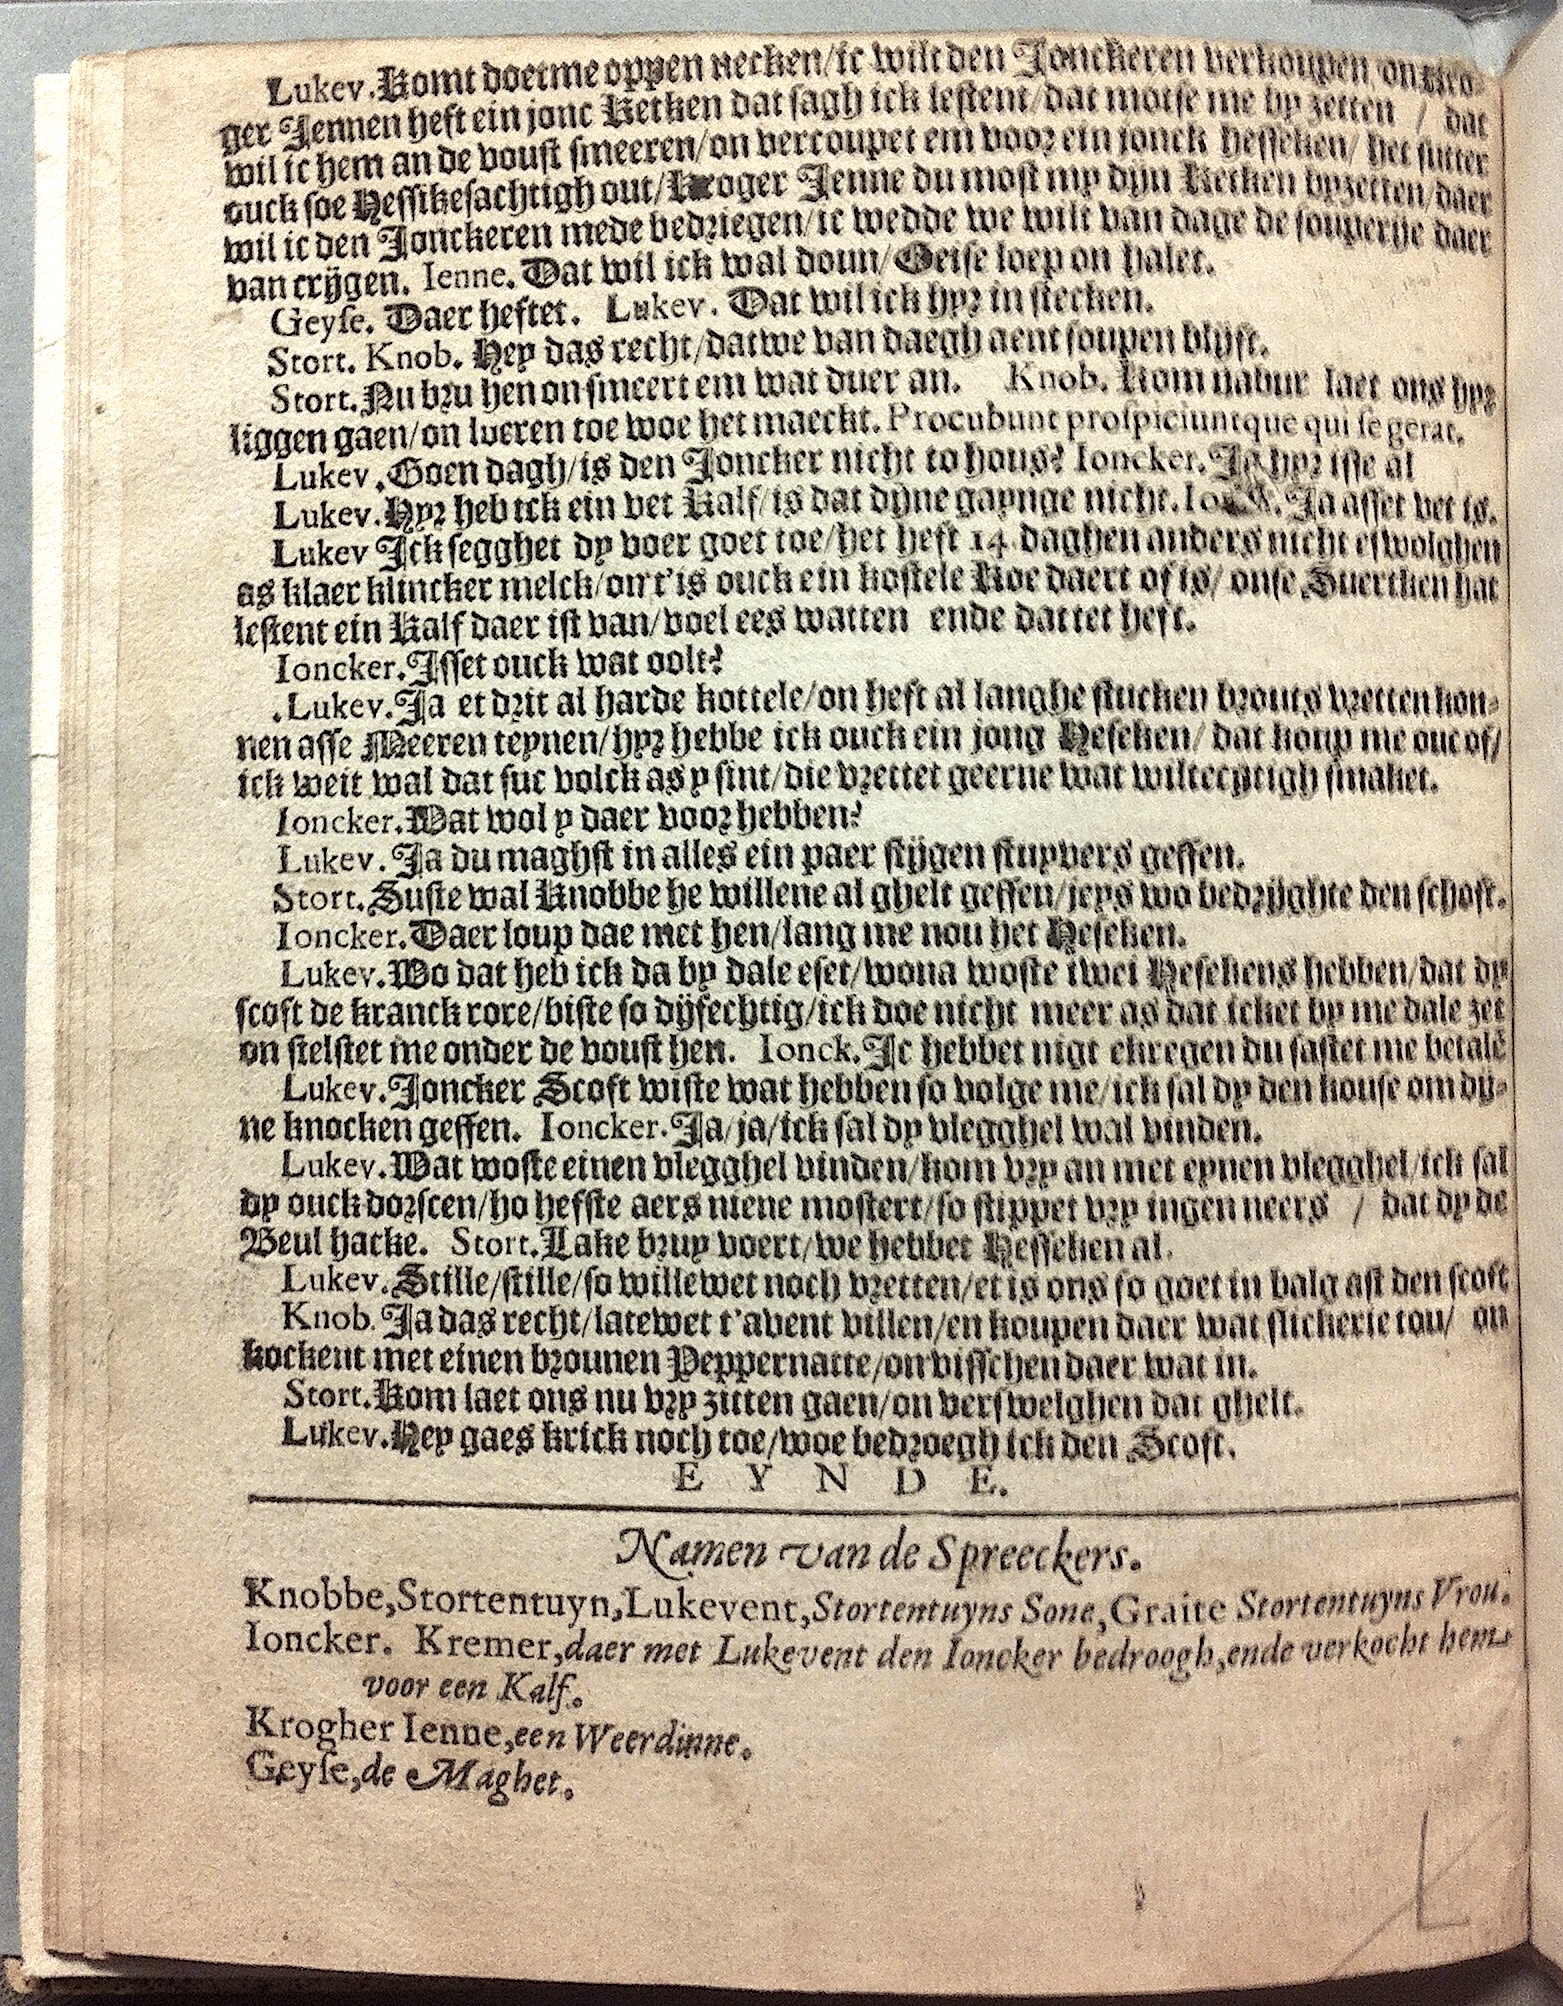 Lukev. Komt doetme oppen necken/ic wilt den Jonckeren verkoupen/on Kro-
ger Jennen heft ein jonc Ketken dat sagh ick lestent/dat motse me by zetten / dat
wil ic hem an de voust smeeren/on vercoupet em voor ein jonck hesseken/ het sutter
ouck soe Hessikesachtigh out/Kroger Jenne du most my dijn Ketken byzetten/daer
wil ic den Jonckeren mede bedriegen/ic wedde we wilt van dage de souperije daer
van crijgen. Ienne. Dat wil ick wal doun/Geise loep on halet.
Geyse. Daer heftet. Lukev. Dat wil ick hyr in stecken.
Stort. Knob. Hey das recht/datwe van daegh aent soupen blijft.
Stort. Nu bru hen on smeert em wat duer an. Knob. Kom nabur laet ons hyr
liggen gaen/on lueren toe woe het maeckt. Procubunt prospiciuntque qui se gerat.
Lukev. Goen dagh/is den Joncker nicht to hous? Ioncker. Ja hyr isse al
Lukev. Hyr heb ick ein vet Kalf/is dat dijne gaynge nicht. Ja asset vet is.
Lukev Ick segghet dy voer goet toe/het heft 14 daghen anders nicht eswolghen
as klaer klincker melck/on t'is ouck ein kostele Koe daert of is/ onse Suertken hat
lestent ein Kalf daer ist van/voel ees watten ende dat tet heft.
Ioncker. Isset ouck wat oolt?
Lukev. Ja et drit al harde kottele/on heft al langhe stucken brouts vretten kon-
nen asse Meeren teynen/hyr hebbe ick ouck ein jong Heseken/ dat koup me ouc of/
ick weit wal dat suc volck as y sint/die vrettet geerne wat wiltecytigh smaket.
Ioncker. Wat wol y daer voor hebben?
Lukev. Ja du maghst in alles ein paer stijgen stuyvers geffen.
Stort. Suste wal Knobbe he willene al ghelt geffen/jeys wo bedrijghte den schoft.
Ioncker. Daer loup dae met hen/lang me nou het Heseken.
Lukev. Wo dat heb ick da by dale eset/wona woste twei Hesekens hebben/dat dy
scoft de kranck rore/biste so dijfechtig/ick doe nicht meer as dat icket by me dale zet
on stelstet me onder de voust hen. Ionck. Ic hebbet nigt ekregen du sastet me betalē
Lukev. Joncker Scoft wiste wat hebben so volge me/ick sal dy den kouse om dij-
ne knocken geffen. Ioncker. Ja/ja/ick sal dy vlegghel wal vinden.
Lukev. Wat woste einen vlegghel vinden/kom vry an met eynen vlegghel/ick sal
dy ouck dorscen/ho hefste aers niene mostert/so stippet vry ingen neers / dat dy de
Beul hacke. Stort. Lake bruy voert/we hebbet Hesseken al.
Lukev. Stille/stille/so willewet noch vretten/et is ons so goet in balg ast den scoft
Knob. Ja das recht/latewet t'avent villen/en koupen daer wat slickerie tou/ on
kockent met einen brounen Peppernatte/on visschen daer wat in.
Stort. Kom laet ons nu vry zitten gaen/on verswelghen dat ghelt.
Lukev. Hey gaes krick noch toe/woe bedroegh ick den Scoft.
E Y N D E.
Namen van de Spreeckers.
Knobbe, Stortentuyn, Lukevent, Stortentuyns Sone, Graite Stortentuyns Vrou.
Ioncker. Kremer, daer met Lukevent den Ioncker bedroogh, ende verkocht hem
voor een Kalf.
Krogher Ienne, een Weerdinne.
Geyse, de Maghet.